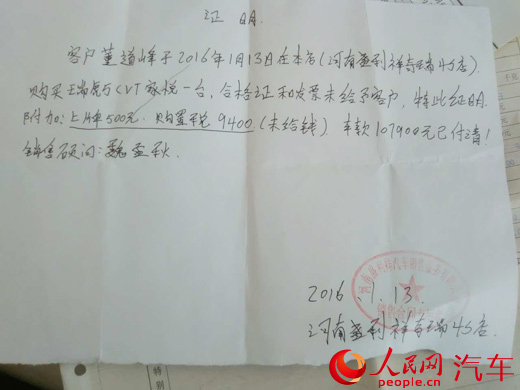 证 明.
客户董道峰于2016年1月13日在本店(河南盈利祥奇瑞4S店).
购买 CVT 一台,合格证和发票未给客户,特此证明.
附加:上牌500元. 购置税9400(未给钱) 车款107900元已付清!
销售顾问:魏孟秋.
2016.1.13.
河南盈利祥奇瑞4S店.
人民网 汽车
people.cn
特别